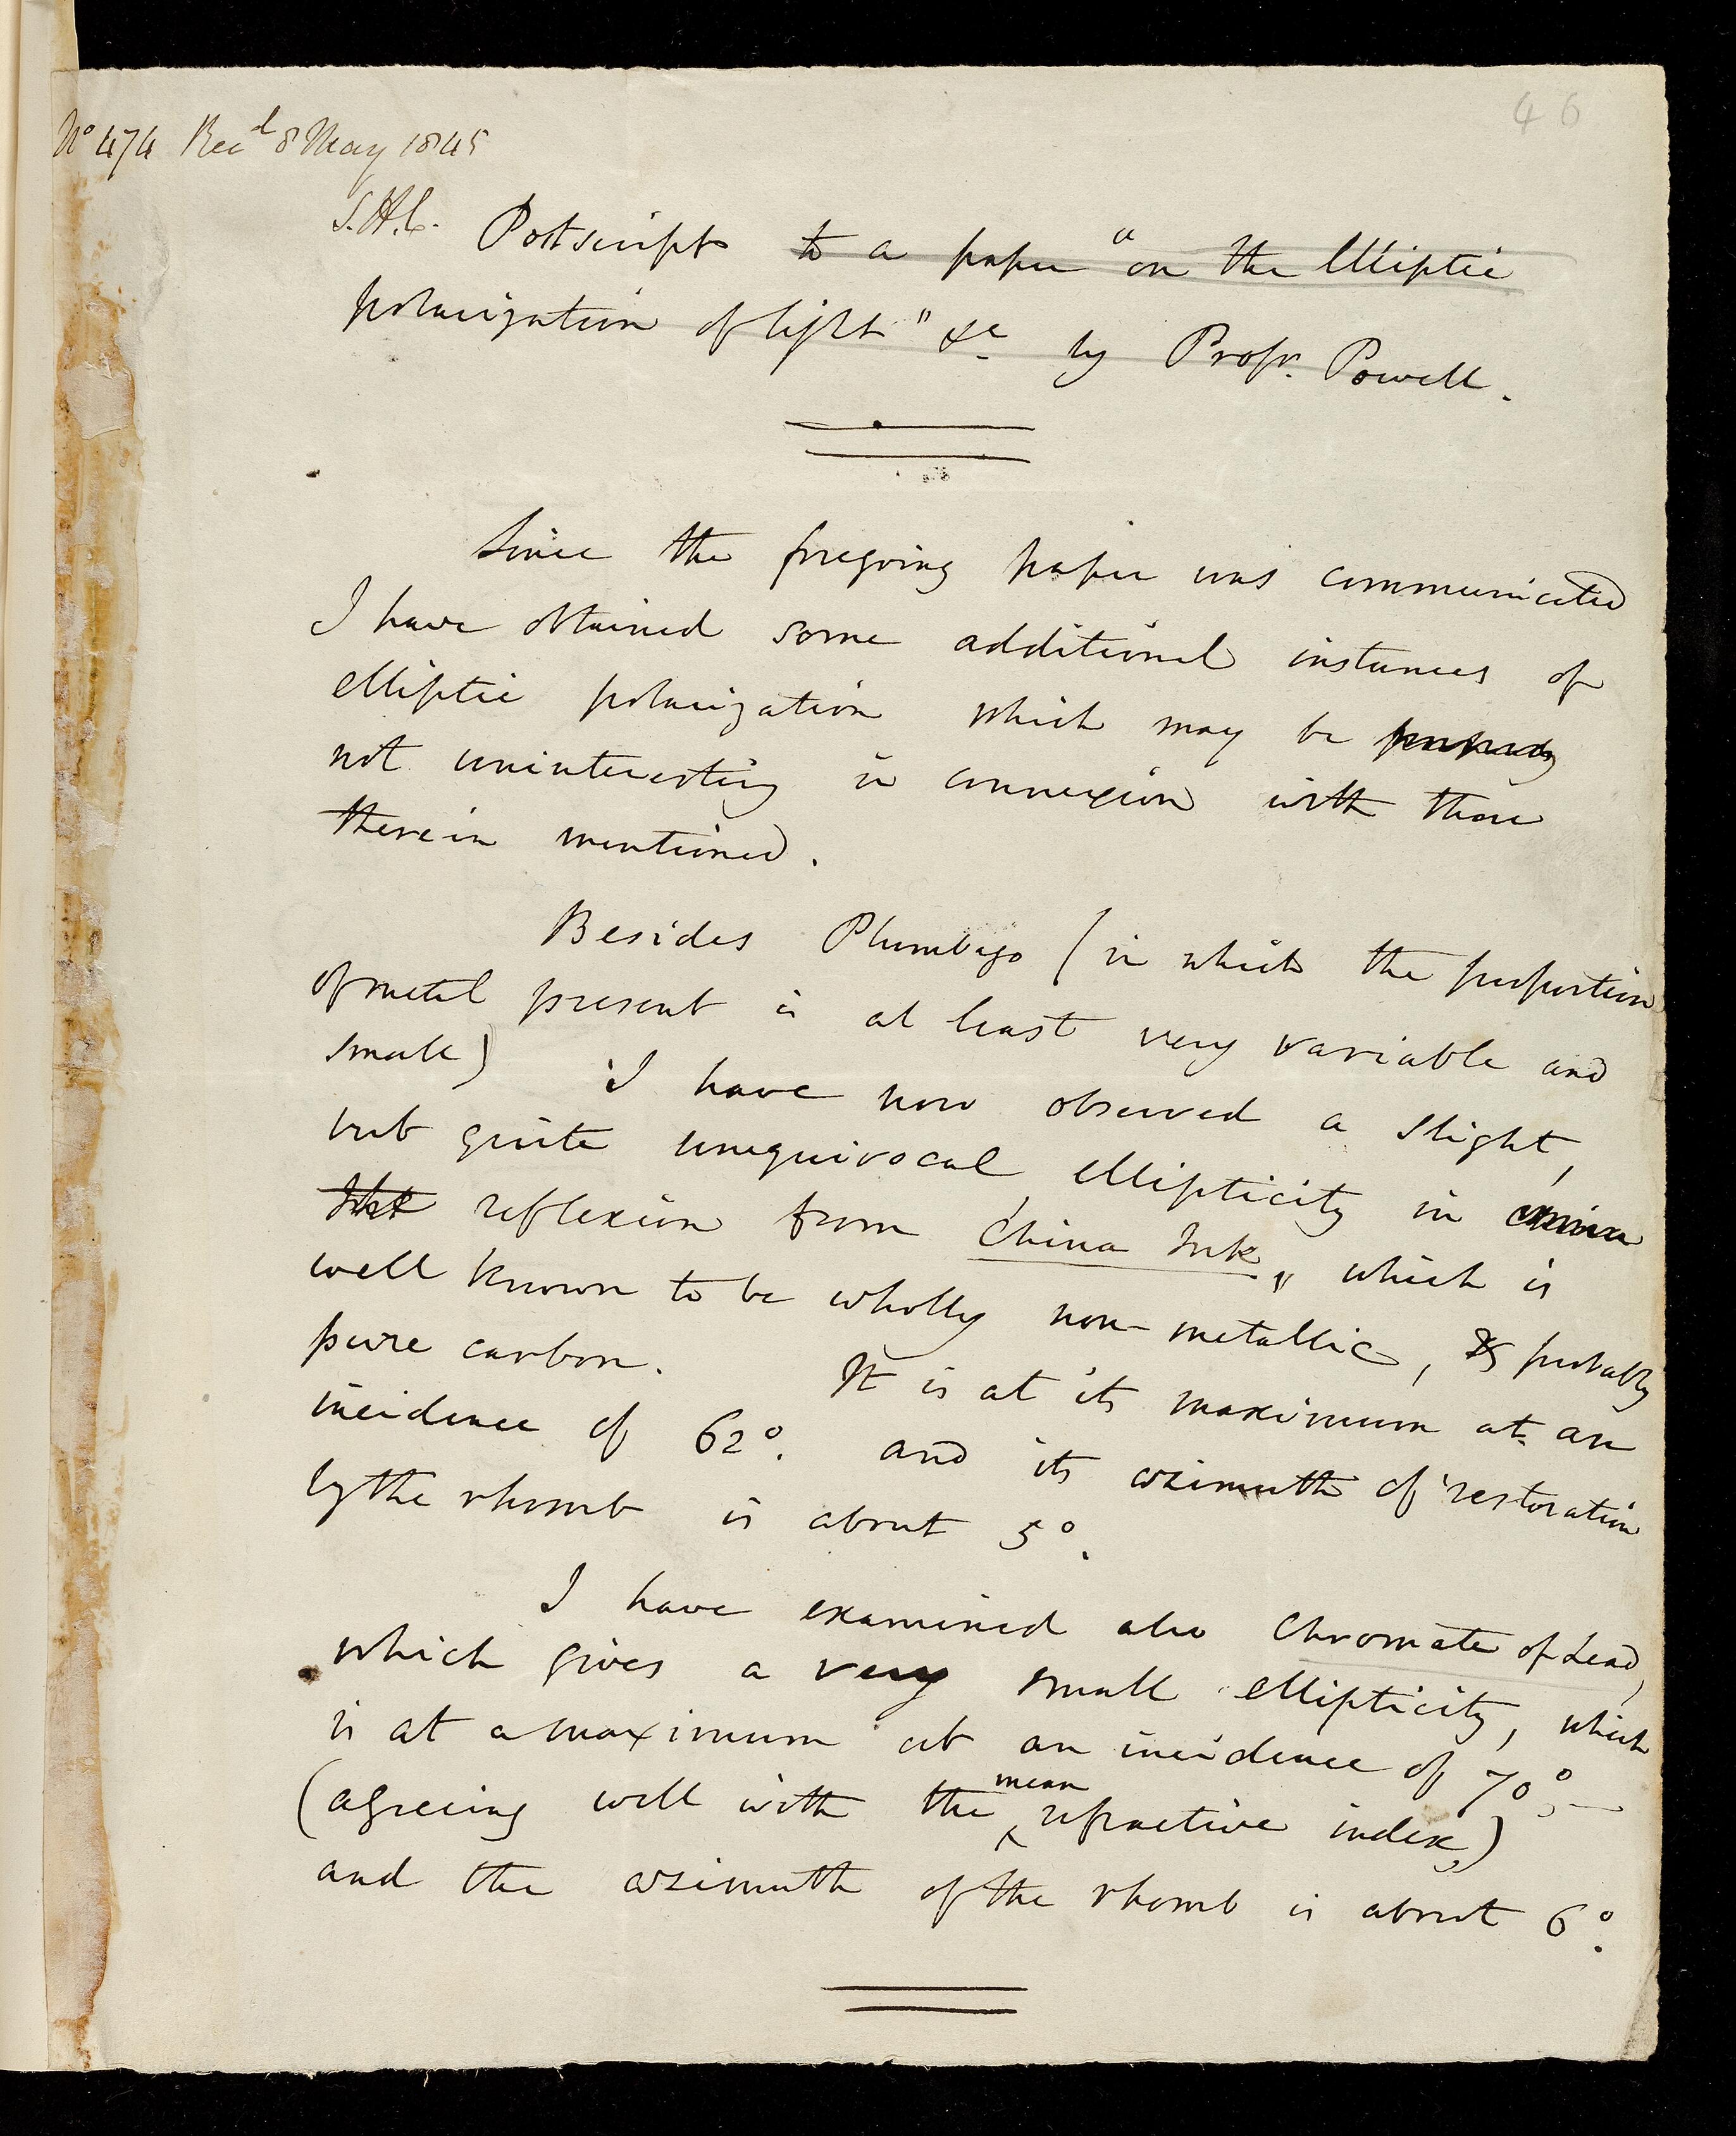 46
No 474 Recd 8 May 1845
S.H.C.
Postscript to a paper "on the Elliptic
polarization of light" &c by Profr. Powell.
Since the foregoing paper was communicated
I have obtained some additional instances of
elliptic polarization which may be
not uninteresting in connexion with those
therein mentioned.
Besides Plumbago (in which the proportion
of metal present is at least very variable and
small) I have now observed a slight,
but quite unequivocal ellipticity in
reflexion from China Ink, which is
well known to be wholly non-metallic, & probably
pure carbon. It is at its maximum at an
incidence of 62°. and its azimuth of restoration
by the rhomb is about 5°.
I have examined also Chromate of Lead,
which gives a very small ellipticity, which
is at a maximum at an incidence of 70°
(agreeing well with the mean refractive index,)
and the azimuth of the rhomb is about 6°.